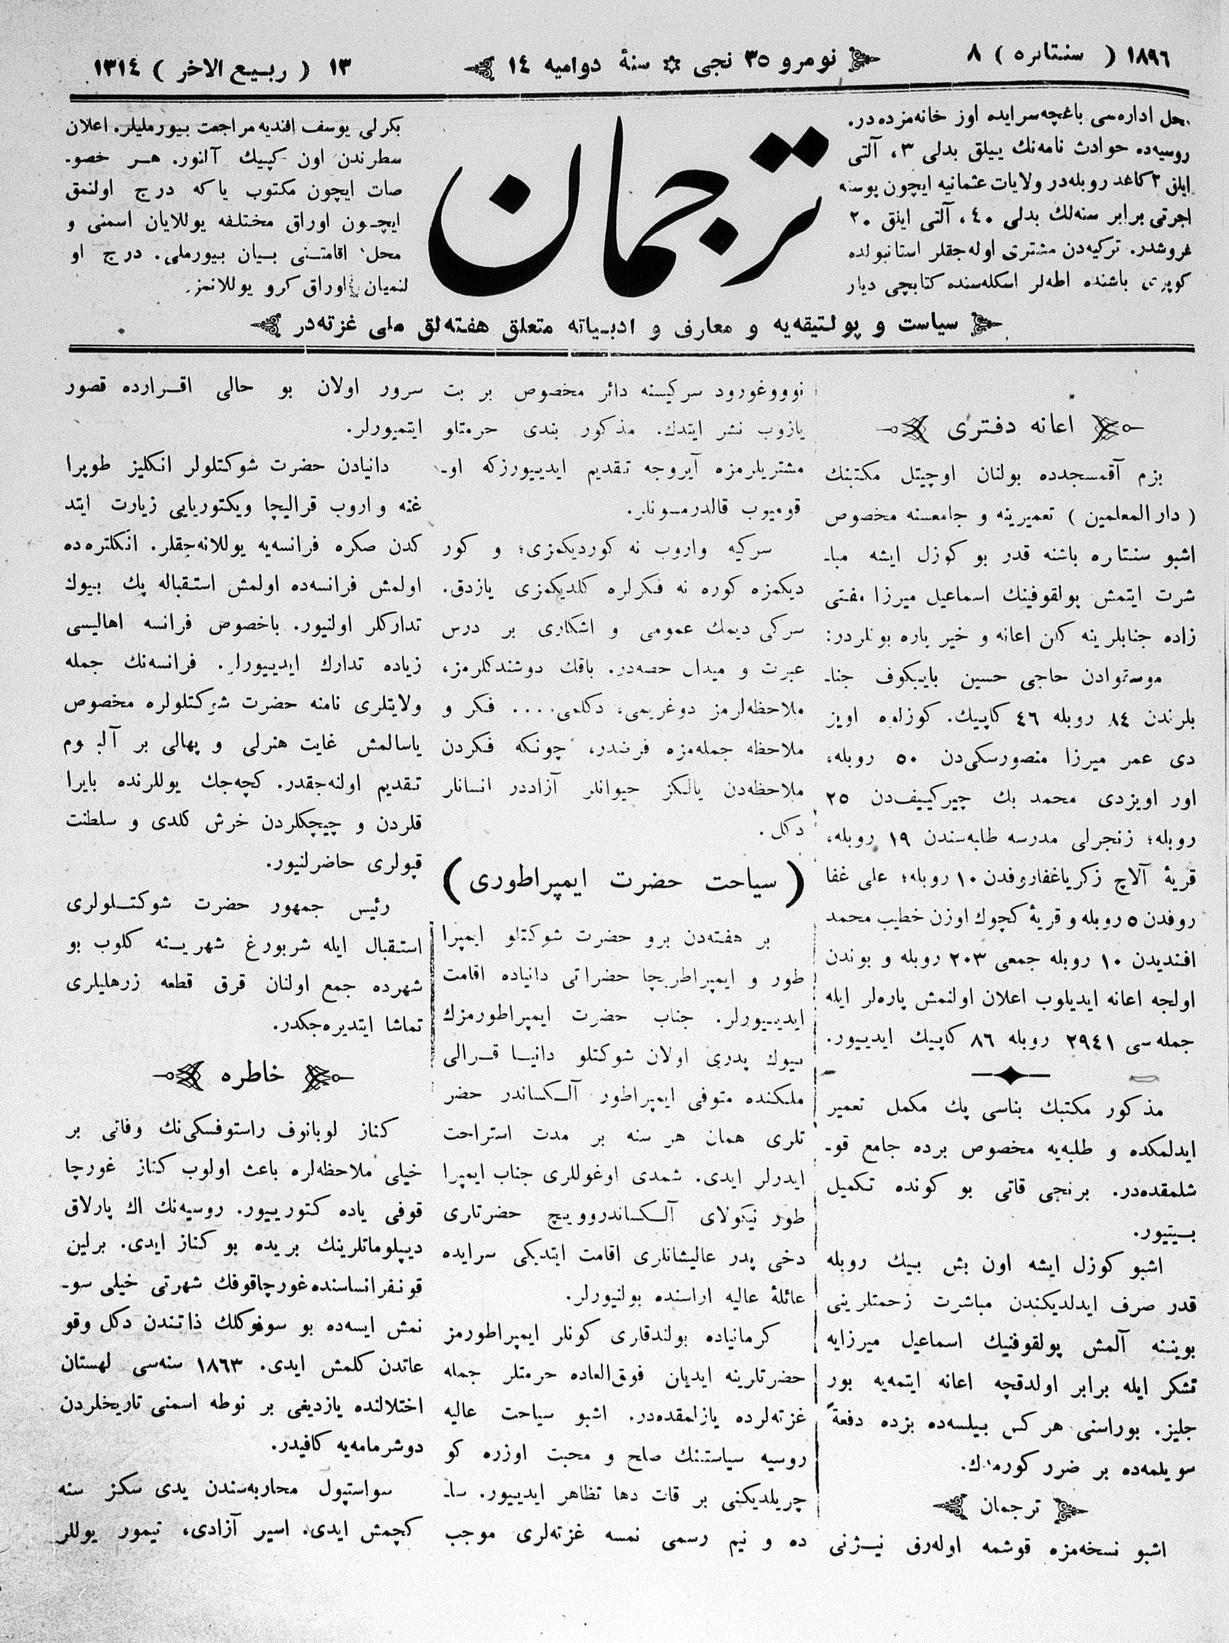 ١٨٩٦ ( سنتابره ) ٨
نومرو ٣٥ نجی ✼ سنهٔ دواميه ١٤
١٣ ( ربيع الاخر ) ١٣١٤
محل اداره‌سی باغچه‌سرايده اوز خانه‌مزده‌در.
روسيه‌ده حوادث نامه‌نك ييلق بدلی ٣، آلتی
ايلق ٢ كاغد روبله‌در ولايات عثمانيه ايچون پوسته
اجرتی برابر سنه‌لك بدلی ٤٠، آلتی ايلق ٢٠
غروشدر. تركيه‌دن مشتری اوله‌جقلر استانبولده
كوپری باشنده اطه‌لر اسكله‌سنده كتابچی ديار
ترجمان
بكرلی يوسف افنديه مراجعت بيورمليلر. اعلان
سطرندن اون كپيك آلنور. هـر خصو-
صات ايچون مكتوب ياكه درج اولنمق
ايچـون اوراق مختلفه يوللايان اسمنی و
محل اقامتـنی بـيان بيورملی. درج او
لنميان اوراق كرو يوللانمز.
سياست و پولتيقه‌يه و معارف و ادبـياته متعلق هفته‌لق ملی غزته‌در
اعانه دفتری
بزم آقمسجدده بولنان اوچيتل مكتبنك
( دار المعلمين ) تعميرينه و جامعسنه مخصوص
اشبو سنتابره باشنه قدر بو كوزل ايشه مبا-
شرت ايتمش پولقوفينك اسماعيل ميرزا مفتی
زاده جنابلرينه كلن اعانه و خير پاره بونلردر:
موستوادن حاجی حسين بايبكوف جنا-
بلرندن ٨٤ روبله ٤٦ كاپيك. كوزلوه اويز
دی عمر ميرزا منصورسكی‌دن ٥٠ روبله،
اور اويزدی محمد بك چيركييف‌دن ٢٥
روبله؛ زنجرلی مدرسه طلبه‌سندن ١٩ روبله،
قريهٔ آلاچ زكريا غفاروفدن ١٠ روبله؛ علی غفا
روفدن ٥ روبله و قريهٔ كچوك اوزن خطيب محمد
افنديدن ١٠ روبله جمعی ٢٠٣ روبله و بوندن
اولجه اعانه ايديلوب اعلان اولنمش پاره‌لر ايله
جمله‌سی ٢٩٤١ روبله ٨٦ كاپيك ايدييور.
مذكور مكتبك بناسی پك مكمل تعمير
ايدلمكده و طلبه‌يه مخصوص برده جامع قو-
شلمقده‌در. برنجی قاتی بو كونده تكميل
بـيتيور.
اشبو كوزل ايشه اون بش بيك روبله
قدر صرف ايدلديكندن مباشرت زحمتلرينی
بوينـنه آلمش پولقوفنيك اسماعيل ميرزايه
تشكر ايله برابر اولدقچه اعانه ايتمه‌يه بور
جليز. بوراسنی هر كس بيلسه‌ده بزده دفعةً
سويلمه‌ده بر ضرر كورمدك.
ترجمان
اشبو نسخه‌مزه قوشمه اوله‌رق نيـژنی
نوووغورود سركيسنه دائر مخصوص بر بت
يازوب نشر ايتدك. مذكور بندی حرمتلو
مشتريلرمزه آيروجه تقديم ايدييورزكه او-
قوميوب قالدرمسونلر.
سركيه واروب نه كورديكمزی؛ و كور
ديكمزه كوره نه فكرلره كلديكمزی يازدق.
سركی ديمك عمومی و اشكاری بر درس
عبرت و ميدل حصه‌در. باقك دوشندكلرمز،
ملاحظه‌لرمز دوغريمی، دكلمی.... فكر و
ملاحظه جمله‌مزه فرضدر، چونكه فكردن
ملاحظه‌دن يالكز حيوانلر آزاددر انسانلر
دكل.
( سياحت حضرت ايمپراطوری )
بر هفته‌دن برو حضرت شوكتلو ايمپرا
طور و ايمپراطريچا حضراتی دانياده اقامت
ايدييورلر. جناب حضرت ايمپراطورمزك
بيوك پدری اولان شوكتلو دانيـا قـرالی
ملكنده متوفی ايمپراطور آلـكساندر حضر
تلری همان هر سنه بر مدت استراحت
ايدرلر ايدی. شمدی اوغوللری جناب ايمپرا
طور نيكولای آلـكساندروويـچ حضرتلری
دخی پدر عاليشانلری اقامت ايتديكی سرايده
عائلهٔ عاليه اراسنده بولنيورلر.
كرمانياده بولندقلری كونلر ايمپراطورمز
حضرتلرينه ايديلن فوق‌العاده حرمتلر جمله
غزته‌لرده يازلمقده‌در. اشبو سياحت عاليه
روسيه سياستنك صلح و محبت اوزره كو
چريلديكنی بر قات دها تظاهر ايدييور. سا-
ده و نيم رسمی نمسه غزته‌لری موجب
سرور اولان بو حالی اقـرارده قصور
ايتميورلر.
دانيادن حضرت شوكتلولر انكليز طوپرا
غنه واروب قراليچا ويكتوريايی زيارت ايتد
كدن صكره فرانسه‌يه يوللانه‌جقلر. انكلتره‌ده
اولمش فرانسه‌ده اولمش استقباله پك بيوك
تداركلر اولنيور. باخصوص فرانسه اهاليسی
زياده تدارك ايدييورلر. فرانسه‌نك جمله
ولايتلری نامنه حضرت شوكتلولره مخصوص
ياسالمش غايت هنرلی و پهالی بر آلبوم
تقديم اولنه‌جقدر. كچه‌جك يوللرنده بايرا
قلردن و چيچكلردن خرش كلدی و سلطنت
قپولری حاضرلنيور.
رئيس جمهور حضرت شوكتـلولری
استقبال ايله شربورغ شهريـنه كلوب بو
شهرده جمع اولنان قرق قطعه زرهليلری
تماشا ايتديره‌جكدر.
خاطره
كناز لوبانوف راستوفسكی‌نك وفاتی بر
خيلی ملاحظه‌لره باعث اولوب كناز غورچا
قوفی ياده كتورييور. روسيه‌نك اك پارلاق
ديپلوماتلرينك بريده بو كناز ايدی. برلين
قونفرانساسنده غورچاقوفك شهرتی خيلی سو-
نمش ايسه‌ده بو سونوكلك ذاتندن دكل وقو
عاتدن كلمش ايدی. ١٨٦٣ سنه‌سی لهستان
اختلالنده يازديغی بر نوطه اسمنی تاريخلردن
دوشرمامه‌يه كافيدر.
سواستپول محاربه‌سندن يدی سكز سنه
كچمش ايدی. اسير آزادی، تيمور يوللر